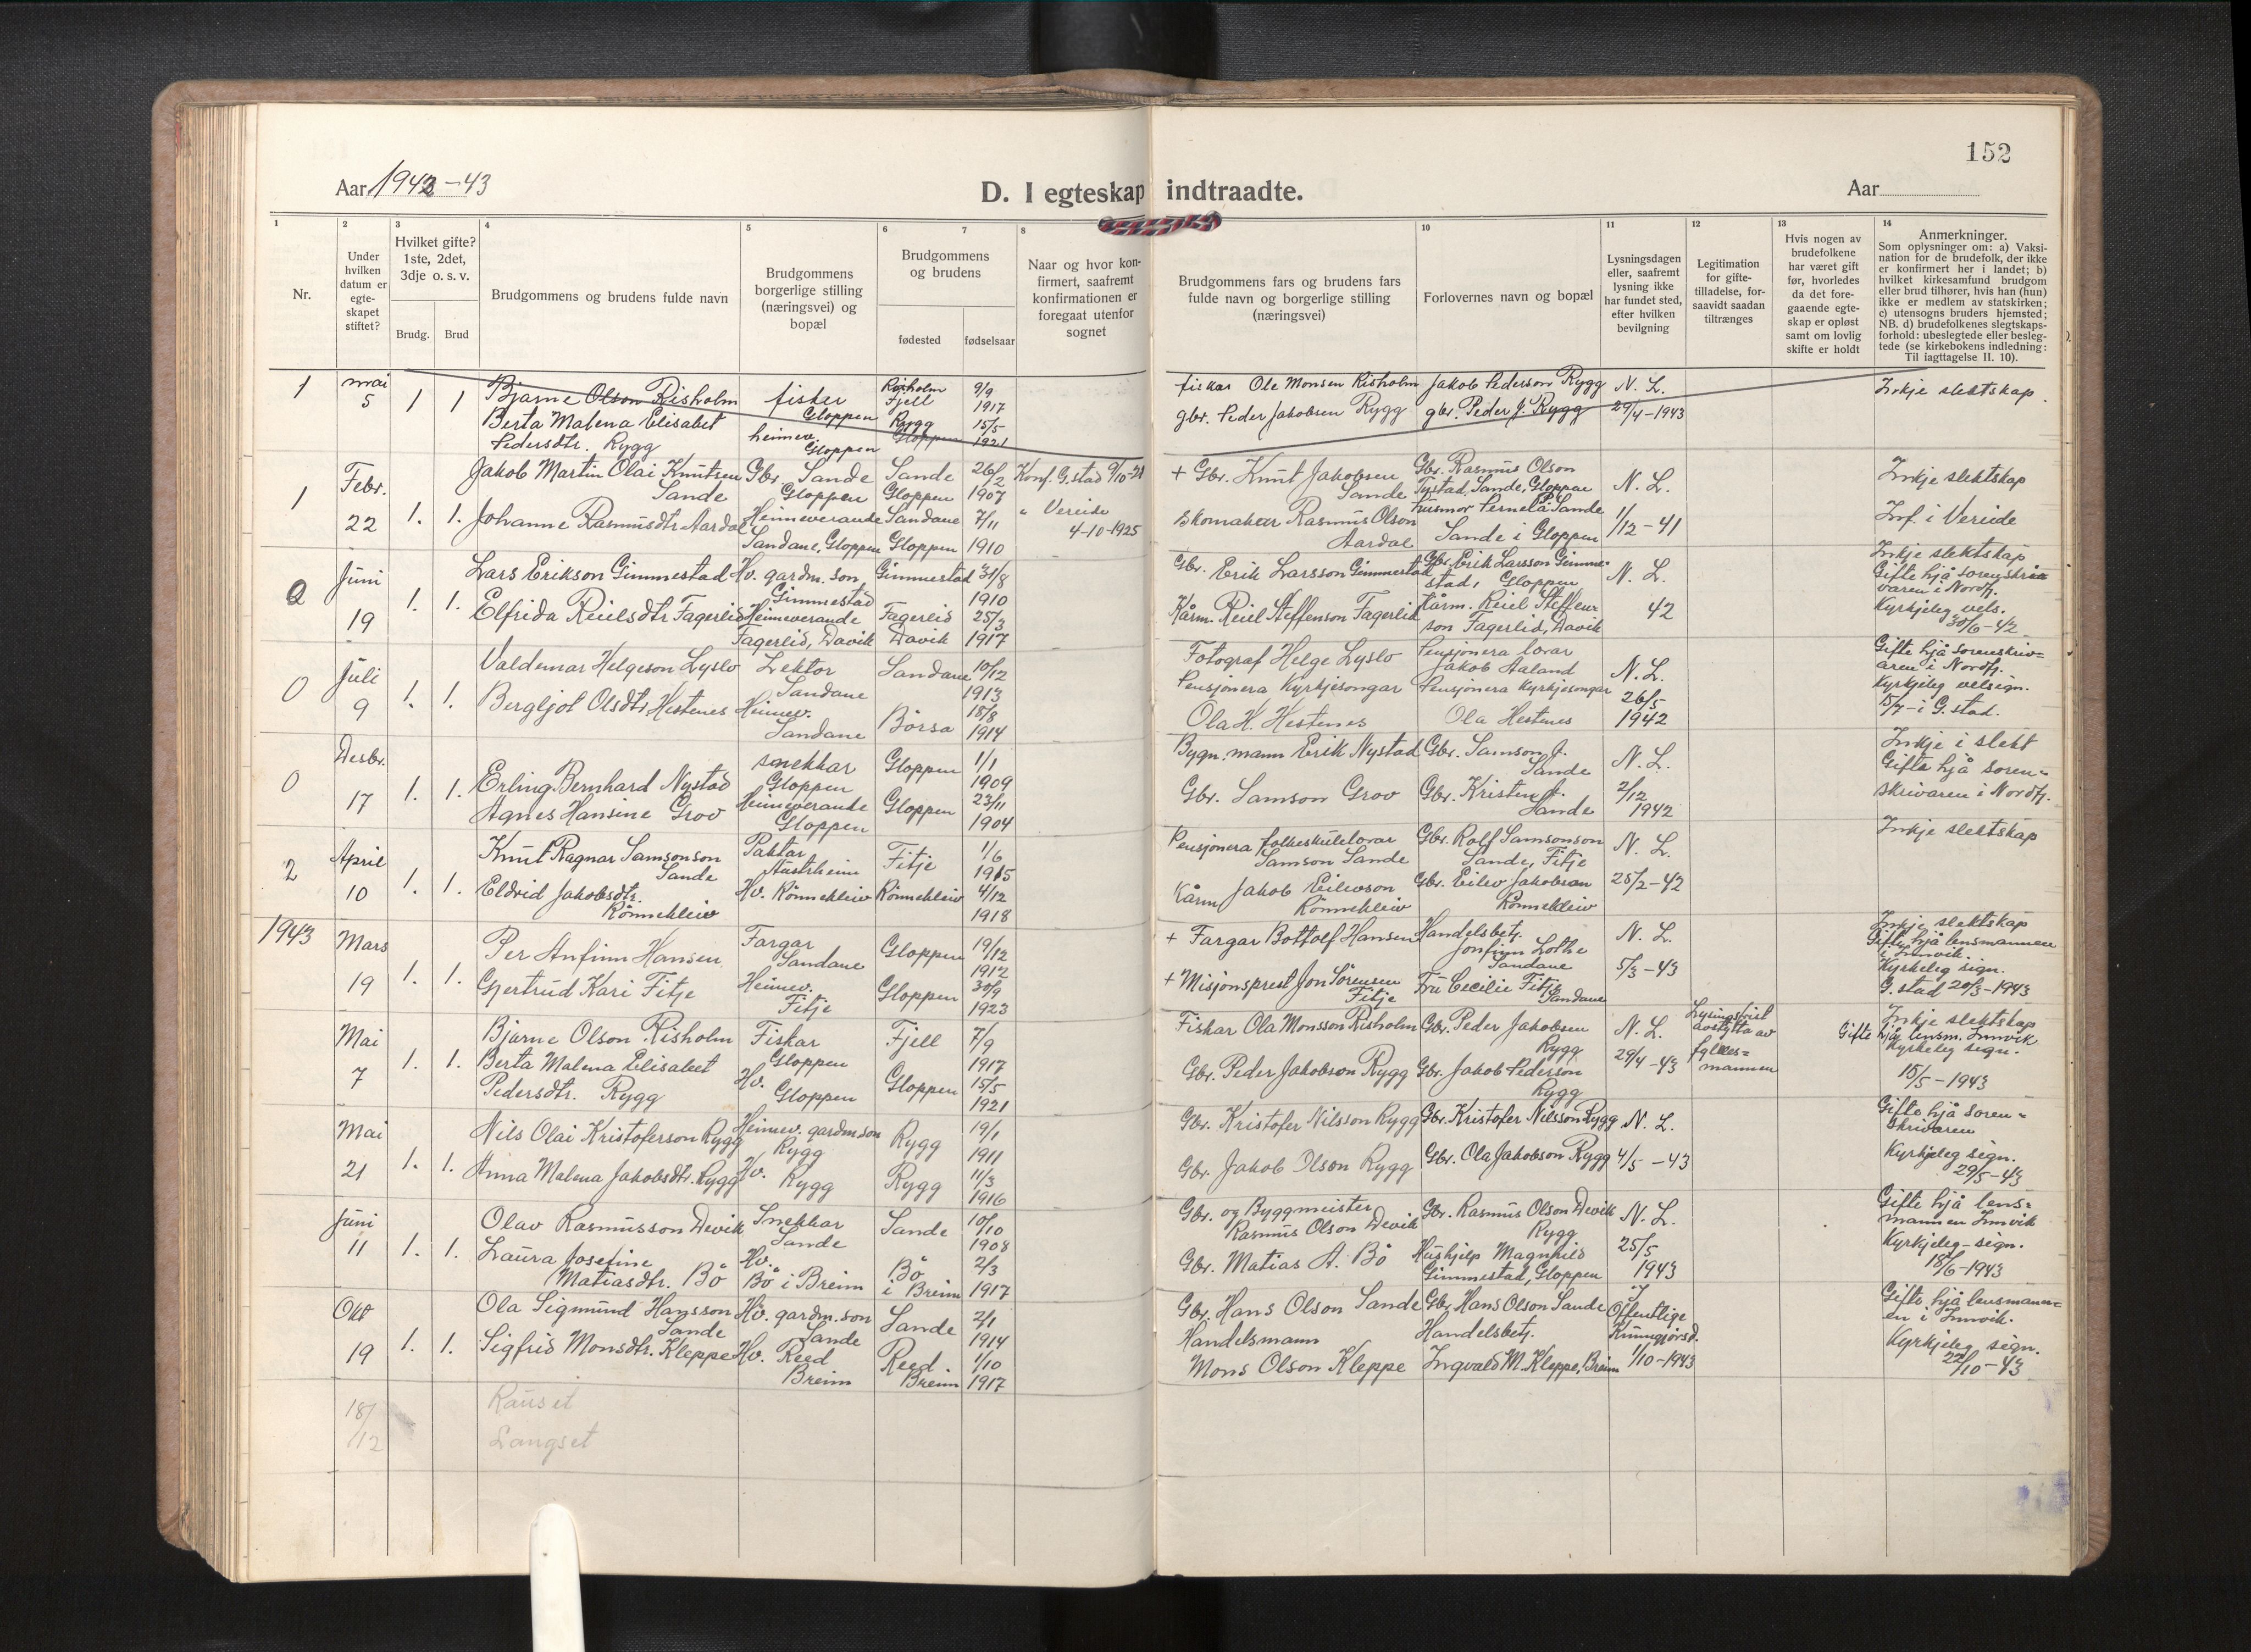 152
Aar 1942-43
D. I egteskap indtraadte.
Aar
1
2
3
4
5
6
7
8
10
11
12
13
14
Nr.
Under hvilken datum er egte-skapet stiftet?
Hvilket gifte? 1ste, 2det, 3dje o. s. v.
Brudg.
Brud
Brudgommens og brudens fulde navn
Brudgommens borgerlige stilling (næringsvei) og bopæl
Brudgommens og brudens
fødested
fødselsaar
Naar og hvor kon-firmert, saafremt konfirmationen er foregaat utenfor sognet
Brudgommens fars og brudens fars fulde navn og borgerlige stilling (næringsvei)
Forlovernes navn og bopæl
Lysningsdagen eller, saafremt lysning ikke har fundet sted, efter hvilken bevilgning
Legitimation for gifte-tilladelse, for-saavidt saadan tiltrænges
Hvis nogen av brudefolkene har været gift før, hvorledes da det fore-gaaende egte-skap er opløst samt om lovlig skifte er holdt
Anmerkninger.
Som oplysninger om: a) Vaksi-nation for de brudefolk, der ikke er konfirmert her i landet; b) hvilket kirkesamfund brudgom eller brud tilhører, hvis han (hun) ikke er medlem av statskirken; c) utensogns bruders hjemsted; NB. d) brudefolkenes slegtskaps-forhold: ubeslegtede eller besleg-tede (se kirkebokens indledning: Til iagttagelse II. 10).
1 mai 5 1 1 Bjarne Olson Risholm fisker Gloppen Risholm Fjell 9/9 1917
Berta Malena Elisabet Pedersdtr. Rygg heimev. Gloppen Rygg Gloppen 15/5 1921
fiskar Ole Monsen Risholm Jakob Pederson Rygg N. L.
gbr. Peder Jakobsen Rygg gbr. Peder J. Rygg 29/4-1943
Inkje slektskap.
1 Febr. 22 1. 1. Jakob Martin Olai Knutsen Sande Gbr. Sande Gloppen Sande Gloppen 26/2 1907 Konf. G.stad 9/10-21
Johanne Rasmusdtr Aardal Heimeverande Sandane, Gloppen Sandane Gloppen 7/11 1910 " Vereide 4-10-1925
+ Gbr. Knut Jakobsen Sande Gbr. Rasmus Olson Tystad, Sande, Gloppen N. L.
Skomakar Rasmus Olson Aardal husmor Pernela Sande Sande i Gloppen 1/12-41
Inkje slektskap
Inf. i Vereide
2 Juni 19 1. 1. Lars Erikson Gimmestad Hv. gardm. son Gimmestad Gimmestad 31/8 1910
Elfrida Reielsdtr Fagerlid Heimeverande Fagerlid, Davik Fagerlid Davik 25/3 1917
Gbr. Erik Larsson Gimmestad Gbr. Erik Larsson Gimmestad, Gloppen N. L.
Kårm. Reiel Steffenson Fagerlid Kårm. Reiel Steffenson Fagerlid, Davik 42
Inkje slektskap
Gifte hjå sorenskrivaren i Nordfj.
Kyrkjeleg vels. 30/6-42
0 Juli 9 1. 1. Valdemar Helgeson Lyslo Lektor Sandane Sandane 10/12 1913
Bergljot Olsdtr. Hestenes Heimev. Sandane Börsa 18/8 1914
Fotograf Helge Lyslo Pensjonera lærar Jakob Aaland N. L.
Pensjonera Kyrkjesongar Ola H. Hestenes Pensjonera Kyrkjesongar Ola Hestenes 26/5 1942
Gifte hjå sorenskriv=aren i Nordfj.
Kyrkjeleg velsign. 15/7- i G.stad.
0 Desbr. 17 1. 1. Erling Bernhard Nystad snekkar Gloppen Gloppen 1/1 1909
Agnes Hansine Grov Heimeverande Gloppen Gloppen 23/11 1904
Bygn. mann Erik Nystad Gbr. Samson J. Sande N. L.
Gbr. Samson Grov Gbr. Kristen J. Sande 2/12 1942
Inkje i slekt
Gifte hjå soren=skrivaren i Nordfj.
2 April 10 1. 1. Knut Ragnar Samsonson Sande Paktar Austrheim Fitje 1/6 1915
Eldrid Jakobsdtr. Rönnekleiv Hv. Rönnekleiv Rönnekleiv 4/12 1918
Pensjonera folkeskulelærar Samson Sande Gbr. Rolf Samsonson Sande, Fitje N. L.
Kårm Jakob Eilevson Rönnekleiv Gbr. Eilev Jakobson Rönnekleiv 25/2-42
Inkje slektskap
1943 Mars 19 1. 1. Per Anfinn Hansen Fargar Sandane Gloppen 19/12 1912
Gjertrud Kari Fitje Heimev. Fitje Gloppen 30/9 1923
+ Fargar Bottolf Hansen Handelsbetj. Jonfinn Lothe Sandane N. L.
+ Misjonsprest Jon Sörensen Fitje Fru Cecilie Fitje Sandane 5/3-43
Inkje slektskap
Gifte hjå lensmannen i Innvik.
Kyrkeleg sign. G.stad 20/3-1943
Mai 7 1. 1. Bjarne Olson Risholm Fiskar Gloppen Fjell 7/9 1917
Berta Malena Elisabet Pedersdtr. Rygg Hv. Gloppen Gloppen 15/5 1921
Fiskar Ola Monsson Risholm Gbr. Peder Jakobsen Rygg N. L.
Gbr. Peder Jakobson Rygg Gbr. Jakob Pederson Rygg 29/4-43
avstytta av fylkes=mannen
Inkje slektskap
Gifte hjå lensm. Innvik
Kyrkeleg sign. 15/5-1943
Mai 21 1. 1. Nils Olai Kristoferson Rygg Heimev. gardm.son Rygg Rygg 19/1 1911
Anna Malena Jakobsdtr. Rygg Hv. Rygg Rygg 11/3 1916
Gbr. Kristofer Nilsson Rygg Gbr. Kristofer Nilsson Rygg N. L.
Gbr. Jakob Olson Rygg Gbr. Ola Jakobson Rygg 4/5-43
Gifte hjå soren=skrivaren
Kyrkjeleg sign. 29/5-43
Juni 11 1. 1. Olav Rasmusson Devik Snekkar Sande Sande 10/10 1908
Laura Josefine Matiasdtr. Bö Hv. Bö i Breim Bö i Breim 2/3 1917
Gbr. og Byggmeister Rasmus Olson Devik Gbr. Rasmus Olson Devik Rygg N. L.
Gbr. Matias A. Bö Hushjelp Magnhild Gimmestad, Gloppen 25/5 1943
Gifte hjå lens=mannen Innvik
Kyrkjeleg-sign. 18/6-1943
Okt 19 1. 1. Ola Sigmund Hansson Sande Hv. gardm.son Sande Sande 2/1 1914
Sigfrid Monsdtr. Kleppe Hv. Reed Breim Reed. Breim 1/10 1917
Gbr. Hans Olson Sande Gbr. Hans Olson Sande Offentlige Kunngjörsd.
Handelsmann Mons Olson Kleppe Handelsbetj. Ingvald M. Kleppe, Breim 1/10-1943
Gifte hjå lensmann=en i Innvik.
Kyrkjeleg sign. 22/10-43
18/12 Rauset
Langset